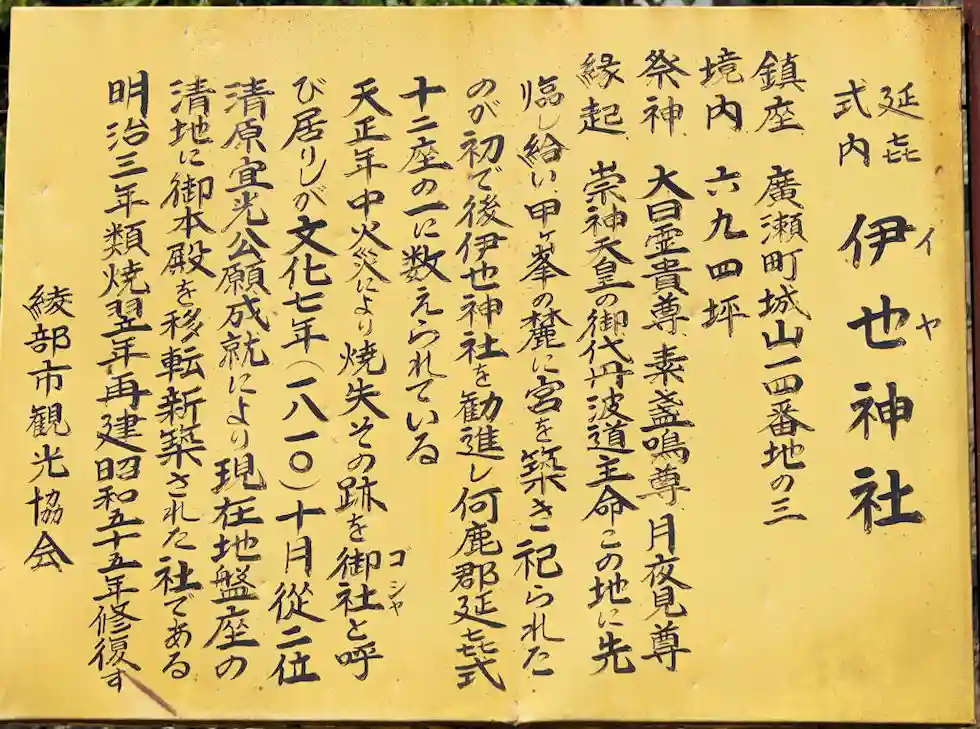 延㐂式内 伊也神社
イヤ
鎮座 廣瀬町城山一四番地の三
境内 六九四坪
祭神 大日霊貴尊 素盞鳴尊 月夜見尊
縁起 崇神天皇の御代丹波道主命この地に先
臨し給い甲ヶ峯の麓に宮を築き祀られた
のが初で後伊也神社を勧進し何鹿郡延㐂式
十二座の一に数えられている
天正年中火災により焼失その跡を御社と呼
コシャ
び居りしが文化七年(一八一〇)十月從二位
清原宣光公願成就により現在地盤座の
清地に御本殿を移転新築された社である
明治三年類焼翌年再建昭和五十五年修復す
綾部市観光協会